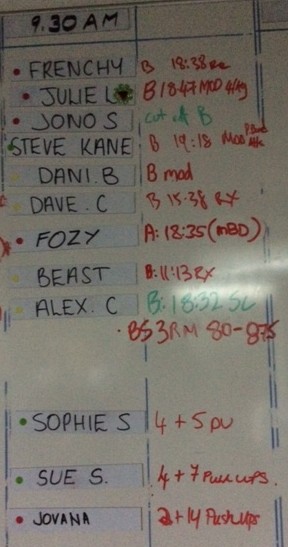 9.30 AM
FRENCHY B 18:38 RX
JULIE L B 18:47 MOD
JONO S cut off B
STEVE KANE B 19:18 MOD
DANI.B B mod
DAVE.C B 15:38 RX
FOZY A: 18:35 (mBD)
BEAST B: 11:13 RX
ALEX.C B: 18:32 SC
BS 3RM 80-87.5
SOPHIE S 4 + 5 PU
SUE S. 4 + 7 Pull UPS.
JOVANA 2+14 Push Ups